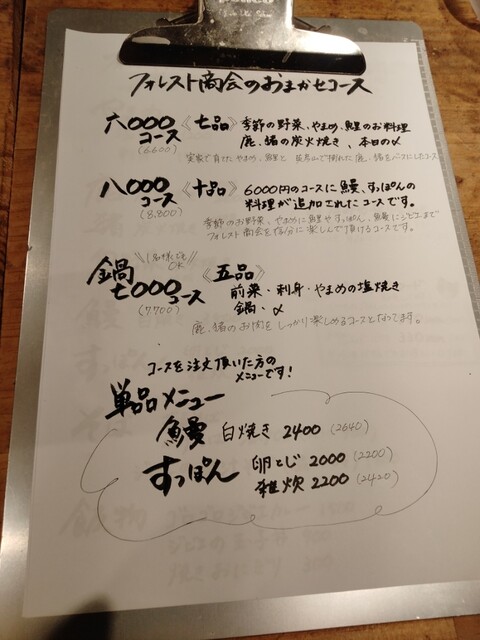 フォレスト商会のおまかせコース
六000コース《七品》 季節の野菜、やまめ、鯉のお料理
(6600) 鹿、猪の炭火焼き、本日の〆
実家で育てたやまめ、鯉と
鹿、猪をベースにしたコース
八000コース《十品》 6000円のコースに鰻、すっぽんの
(8,800) 料理が追加されたコースです。
季節のお野菜、やまめに鯉やすっぽん、鰻にジビエまで
フォレスト商会を存分に楽しんで頂けるコースです。
1名様でもOK
鍋七000コース《五品》
(7700) 前菜・刺身・やまめの塩焼き
鍋・〆
鹿、猪のお肉をしっかり楽しめるコースとなってます。
コースを注文頂いた方の
メニューです!
単品メニュー
鰻 白焼き 2400 (2640)
すっぽん 卵とじ 2000 (2200)
雑炊 2200 (2420)